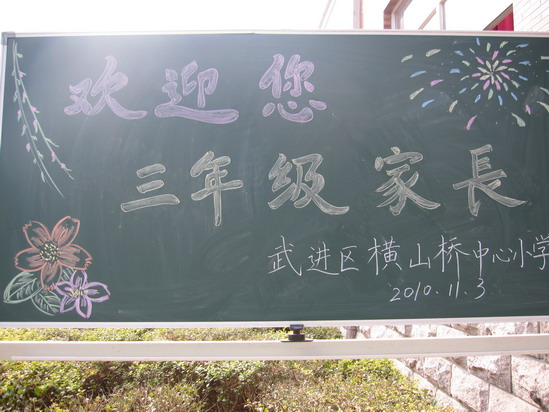 欢迎您
三年级家長
武进区横山桥中心小学
2010.11.3